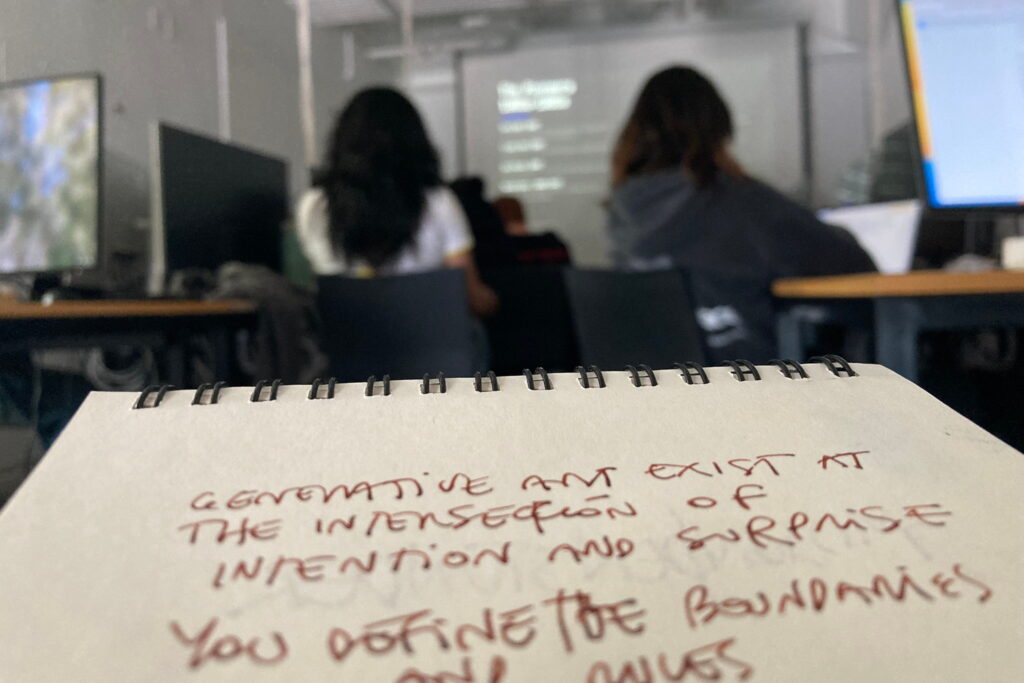 GENERATIVE ART EXIST AT
THE INTERSECTION OF
INTENTION AND SURPRISE
YOU DEFINE THE BOUNDARIES
AND RULES